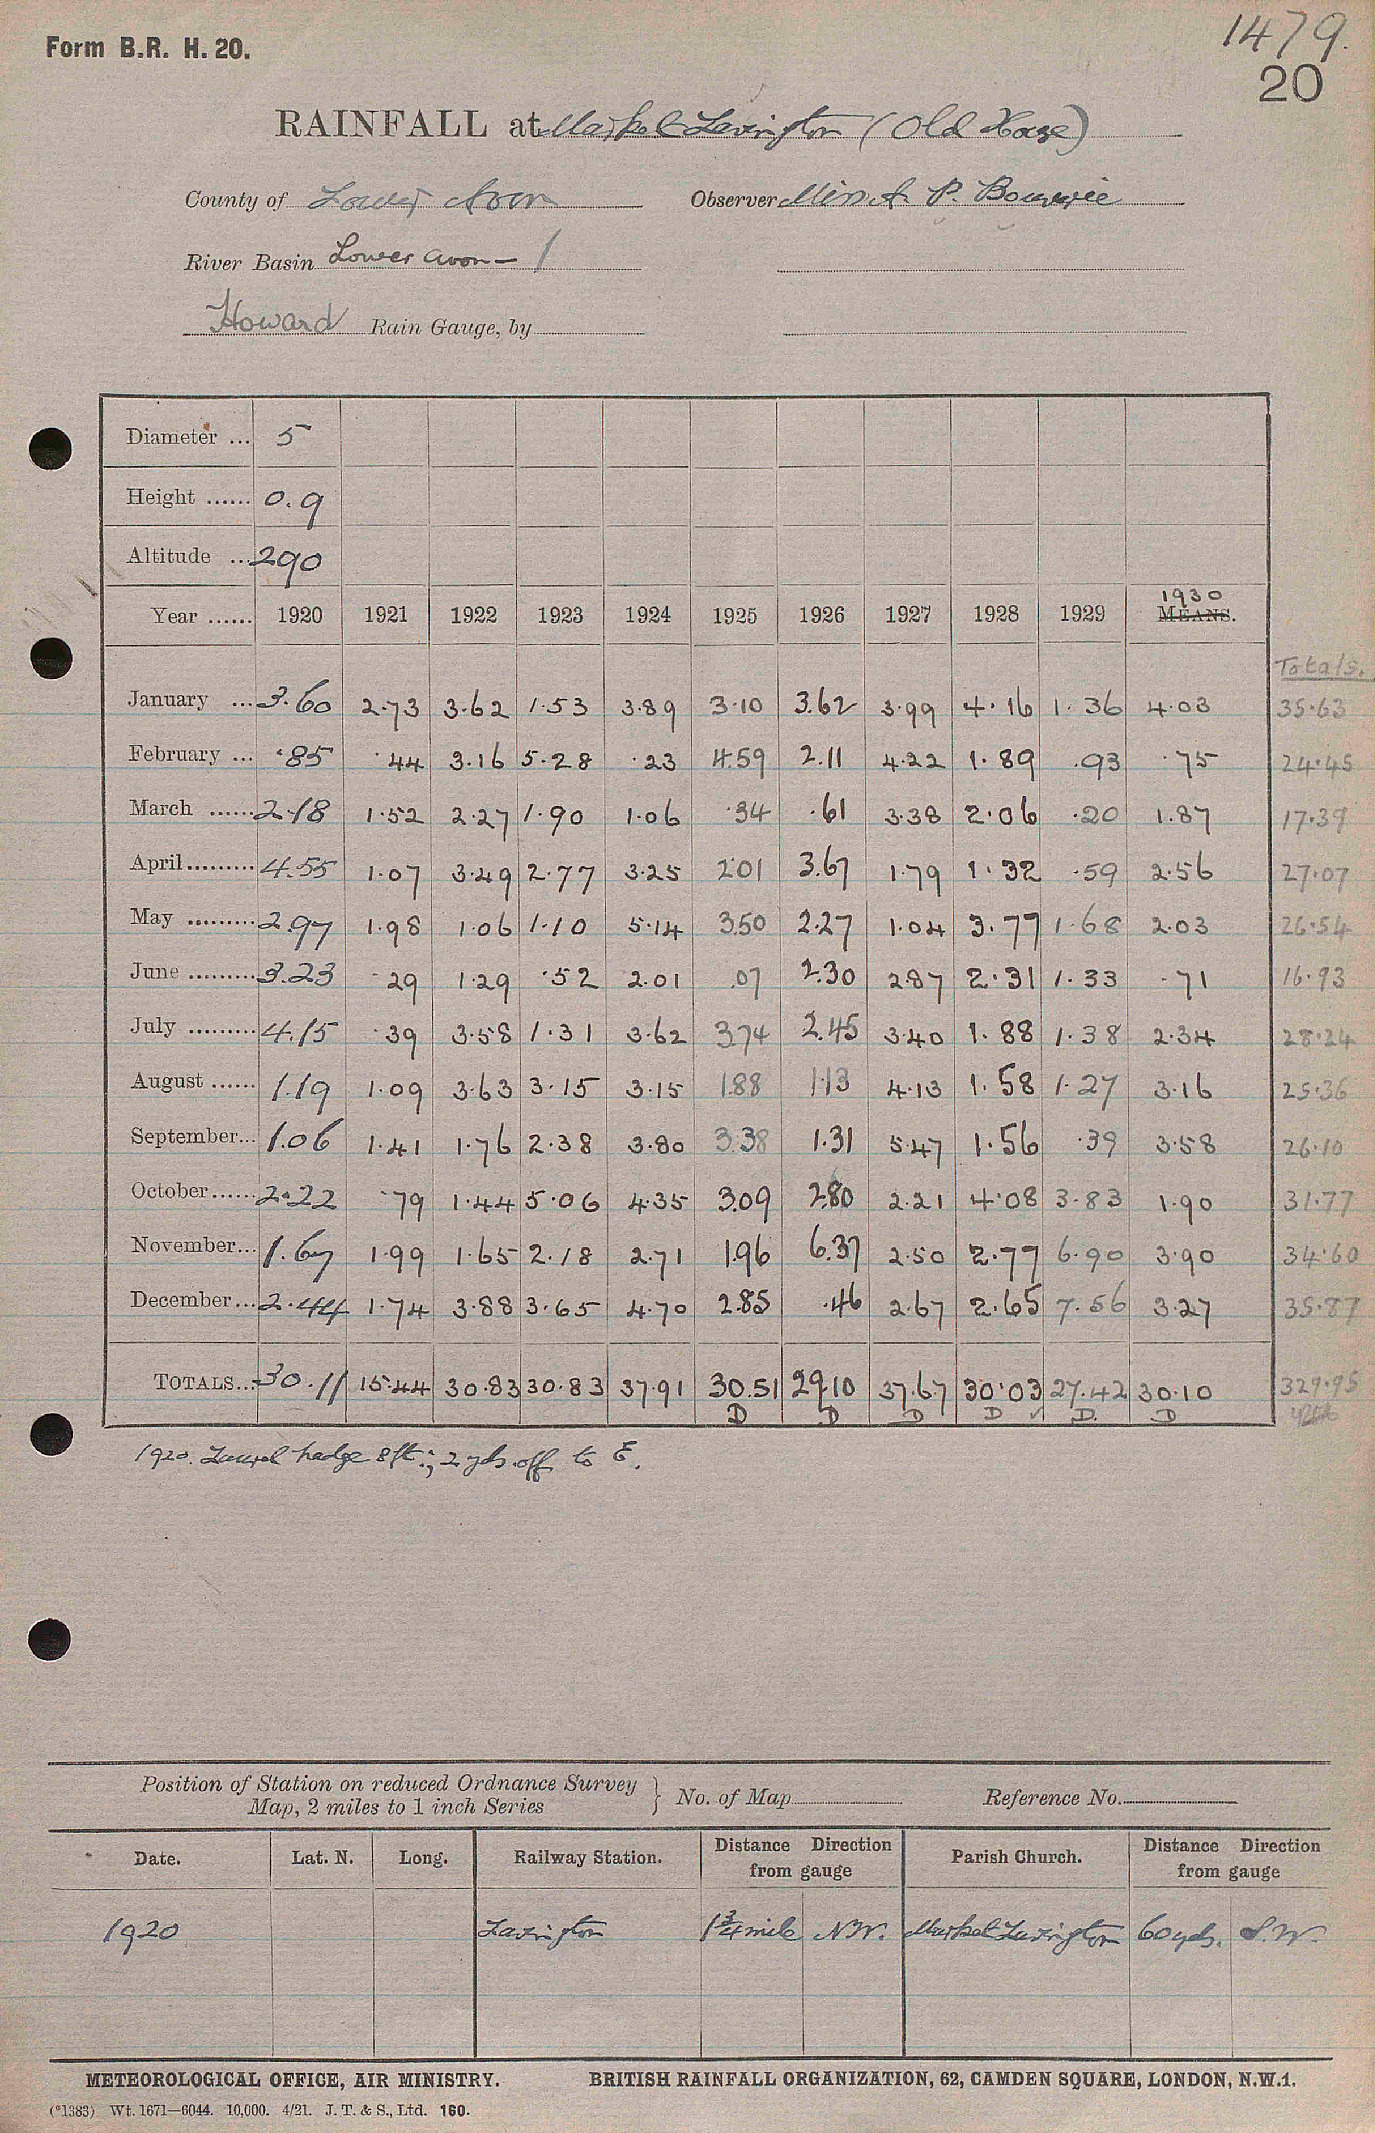 Form B.R. H. 20.
1479.
20
RAINFALL at Market Lavington (Old House)
County of Lower Avon Observer Miss A. P. Bouverie
River Basin Lower Avon – 1
Howard Rain Gauge, by
Diameter ... 5
Height ...... 0.9
Altitude ... 290
Year ...... 1920 1921 1922 1923 1924 1925 1926 1927 1928 1929 1930 MEANS.
Totals.
January ... 3.60 2.73 3.62 1.53 3.89 3.10 3.62 3.99 4.16 1.36 4.03 35.63
February ... .85 .44 3.16 5.28 .23 4.59 2.11 4.22 1.89 .93 .75 24.45
March ...... 2.18 1.52 2.27 1.90 1.06 .34 .61 3.38 2.06 .20 1.87 17.39
April ......... 4.55 1.07 3.49 2.77 3.25 2.01 3.67 1.79 1.32 .59 2.56 27.07
May ......... 2.97 1.98 1.06 1.10 5.14 3.50 2.27 1.04 3.77 1.68 2.03 26.54
June ......... 3.23 .29 1.29 .52 2.01 .07 2.30 2.87 2.31 1.33 .71 16.93
July ......... 4.15 .39 3.58 1.31 3.62 3.74 2.45 3.40 1.88 1.38 2.34 28.24
August ...... 1.19 1.09 3.63 3.15 3.15 1.88 1.13 4.13 1.58 1.27 3.16 25.36
September... 1.06 1.41 1.76 2.38 3.80 3.38 1.31 5.47 1.56 .39 3.58 26.10
October...... 2.22 .79 1.44 5.06 4.35 3.09 2.80 2.21 4.08 3.83 1.90 31.77
November... 1.67 1.99 1.65 2.18 2.71 1.96 6.37 2.50 2.77 6.90 3.90 34.60
December... 2.44 1.74 3.88 3.65 4.70 2.85 .46 2.67 2.65 7.56 3.27 35.87
TOTALS... 30.11 15.44 30.83 30.83 37.91 30.51 29.10 37.67 30.03 27.42 30.10 329.95
D D D D ✓ D. D
1920. Laurel hedge 8ft.; 2 yds. off to E.
Position of Station on reduced Ordnance Survey
Map, 2 miles to 1 inch Series } No. of Map Reference No.
Date. Lat. N. Long. Railway Station. Distance Direction from gauge Parish Church. Distance Direction from gauge
1920 Lavington 1¾ mile NW. Market Lavington 60 yds. S.W.
METEOROLOGICAL OFFICE, AIR MINISTRY. BRITISH RAINFALL ORGANIZATION, 62, CAMDEN SQUARE, LONDON, N.W.1.
(*1383) Wt. 1671—6044. 10,000. 4/21. J. T. & S., Ltd. 160.